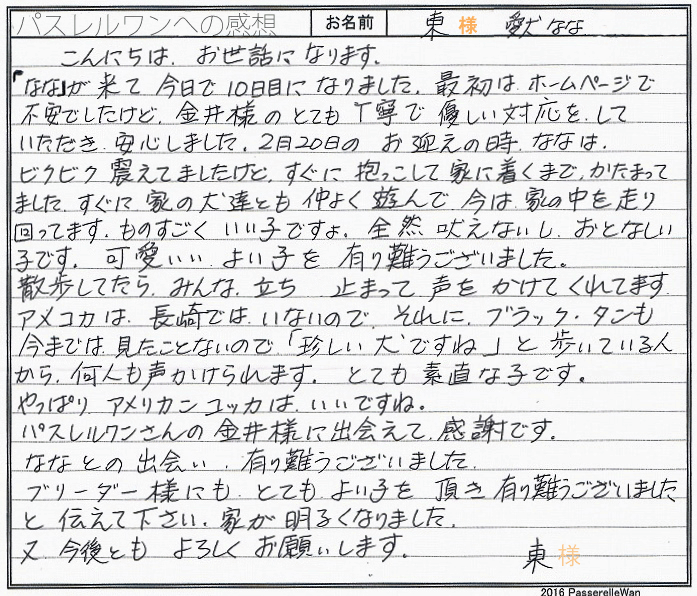 パスレルワンへの感想 お名前 東 様 愛犬 なな
こんにちは、お世話になります。
「なな」が来て今日で10日目になりました。最初はホームページで
不安でしたけど、金井様のとても丁寧で優しい対応をして
いただき安心しました。2月20日のお迎えの時、ななは、
ビクビク震えてましたけど、すぐに抱っこして家に着くまで、かたまって
ました。すぐに家の犬達とも仲よく遊んで、今は、家の中を走り
回ってます。ものすごくいい子ですよ。全然吠えないし、おとなしい
子です。可愛いい、よい子を有り難うございました。
散歩してたら、みんな、立ち止まって声をかけてくれてます
アメコカは、長崎では、いないので、それに、ブラック・タンも
今までは、見たことないので「珍しい犬ですね」と歩いている人
から、何人も声かけられます。とても素直な子です。
やっぱり、アメリカンコッカは、いいですね。
パスレルワンさんの金井様に出会えて、感謝です。
ななとの出会い、有り難うございました。
ブリーダー様にも、とても、よい子を頂き有り難うございました
と伝えて下さい。家が明るくなりました。
又、今後ともよろしくお願いします。
東 様
2016 PasserelleWan